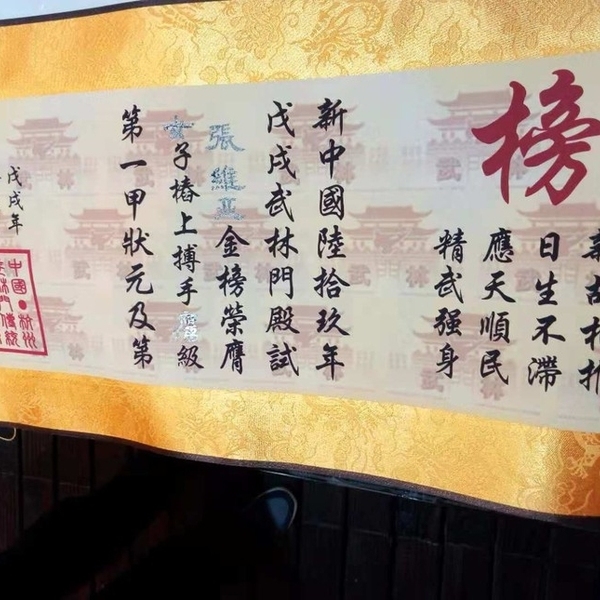 榜
日生不滯
應天順民
精武强身
新中國陸拾玖年
戊戌武林門殿試
張維
金榜榮膺
子樁上搏手
級
第一甲狀元及第
戊戌年
中國·杭州
武林門傳統